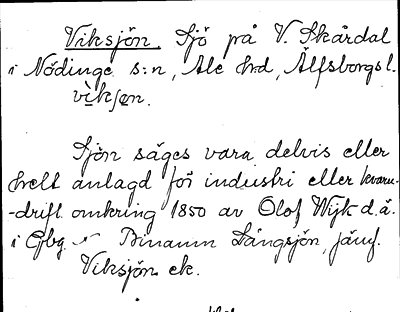 Viksjön. Sjö på V. Skårdal
i Nödinge s:n, Ale hrd, Älfsborgs l.
viksøn.
Sjön säges vara delvis eller
helt anlagd för industri eller kvarn-
-drift omkring 1850 av Olof Wijk d.ä.
i Gbg. Binamn Långsjön, jämf.
Viksjön ek.